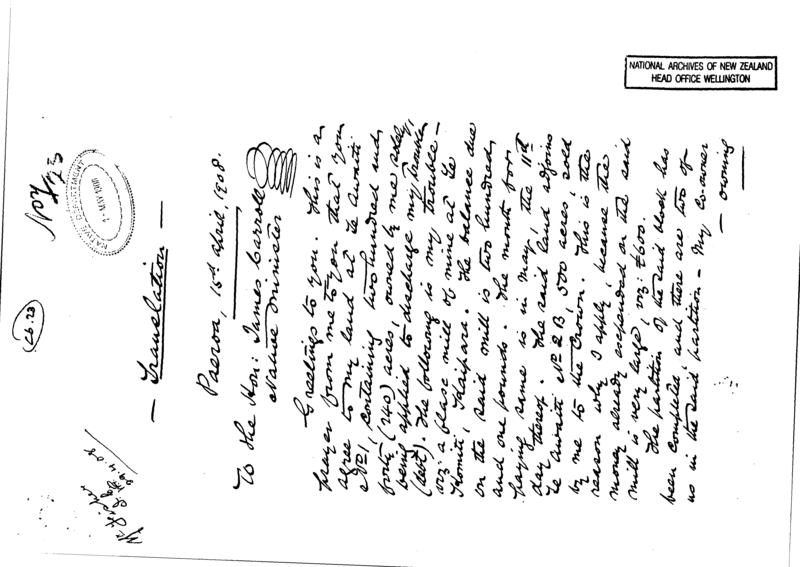 NATIONAL ARCHIVES OF NEW ZEALAND
HEAD OFFICE WELLINGTON
NATIVE DEPARTMENT
MAY 1908
(26.23)
— Translation —
Paeroa, 15th April, 1908.
To the Hon: James Carroll
Native Minister
Greetings to you. This is a
prayer from me to you that you
agree to my land at Te Awaiti
No 1, containing two hundred and
forty (240) acres, owned by me solely,
being applied to discharge my trouble
(debt). The following is my trouble –
viz: a flax mill of mine at Te
Komiti, Kaipara. The balance due
on the said mill is two hundred
and one pounds. The month for
paying same is in May, the 11th
day thereof. The said land adjoins
Te Awaiti No 2B, 500 acres, sold
by me to the Crown. This is the
reason why I apply, because the
money already expended on the said
mill is very large, viz: £600.
The partition of the said block has
been completed, and there are two of
us in the said partition – My co-owner
– owning